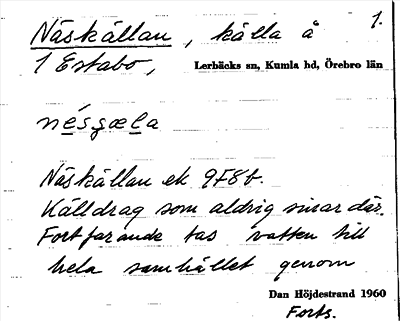 1.
Näskällan, källa å
1 Estabo, Lerbäcks sn, Kumla hd, Örebro län
nésgœla
Näskällan ek 9F8b.
Källdrag som aldrig sinar där.
Fortfarande tas vatten till
hela samhället genom
Dan Höjdestrand 1960
Forts.